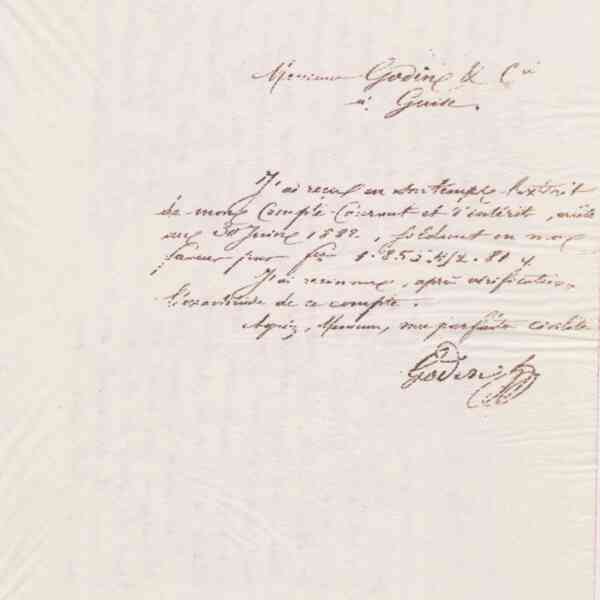 Messieurs Godin & Cie
à Guise.
J'ai reçu en son temps l'extrait
de mon Compte Courant et d'intérêt, arrêté
au 30 Juin 1882, soldant en ma
faveur par frs 1.853.412.81
J'ai reconnu, après vérification,
l'exactitude de ce compte.
Agréez, Messieurs, mes parfaites civilités
Godin